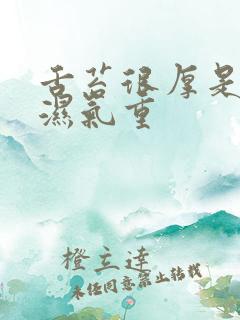 舌苔很厚是
濕氣重
橙立達
未经同意禁止转载